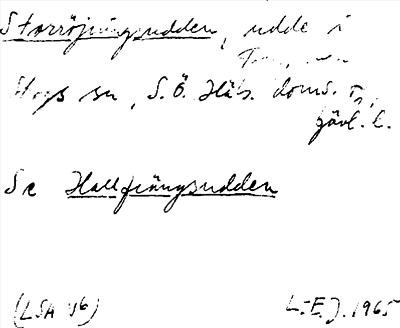 Storröjningsudden, udde i
Hogs sn, S.Ö. Häls. doms.
Gävl. l.
Se Hallfrängsudden
(LSA V6) L-E.J. 1965